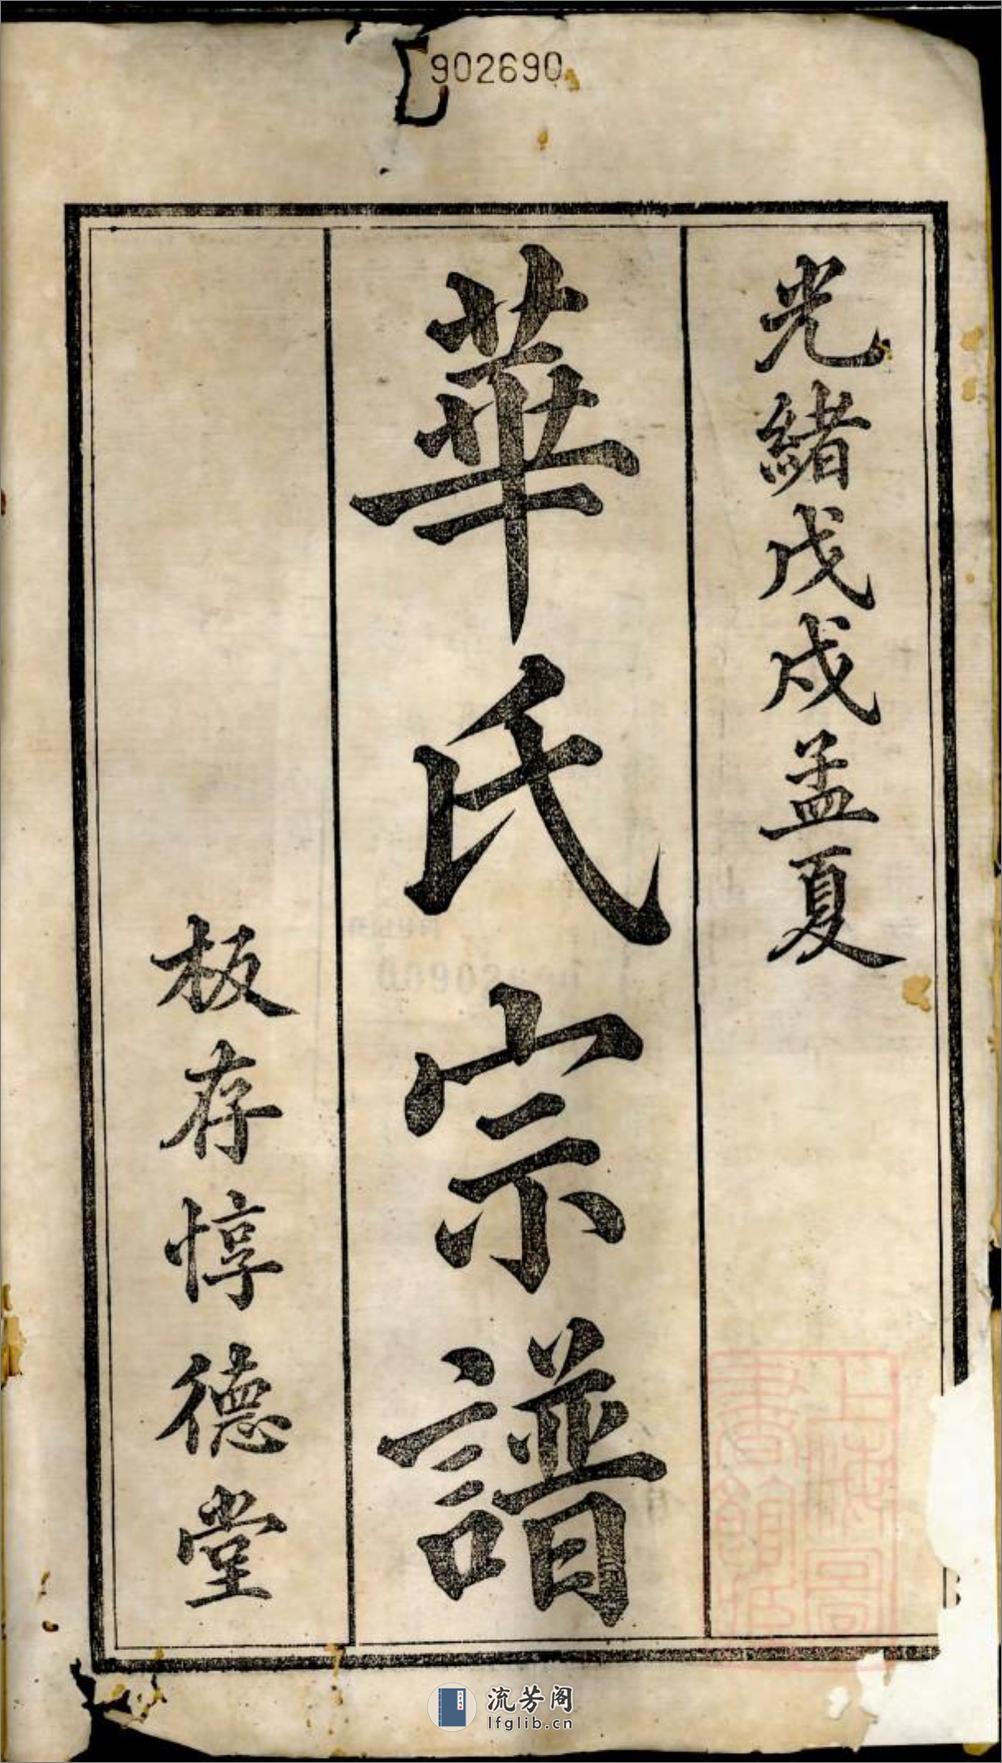 902690
光緒戊戌孟夏
華氏宗譜
板存惇德堂
流芳阁
lfglib.cn